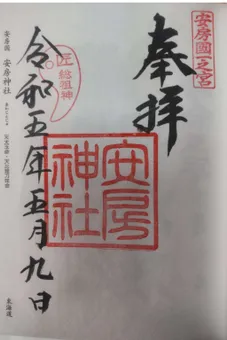 安房國一之宮
奉拝
安房神社
匠総祖神
令和五年五月九日
安房國 安房神社